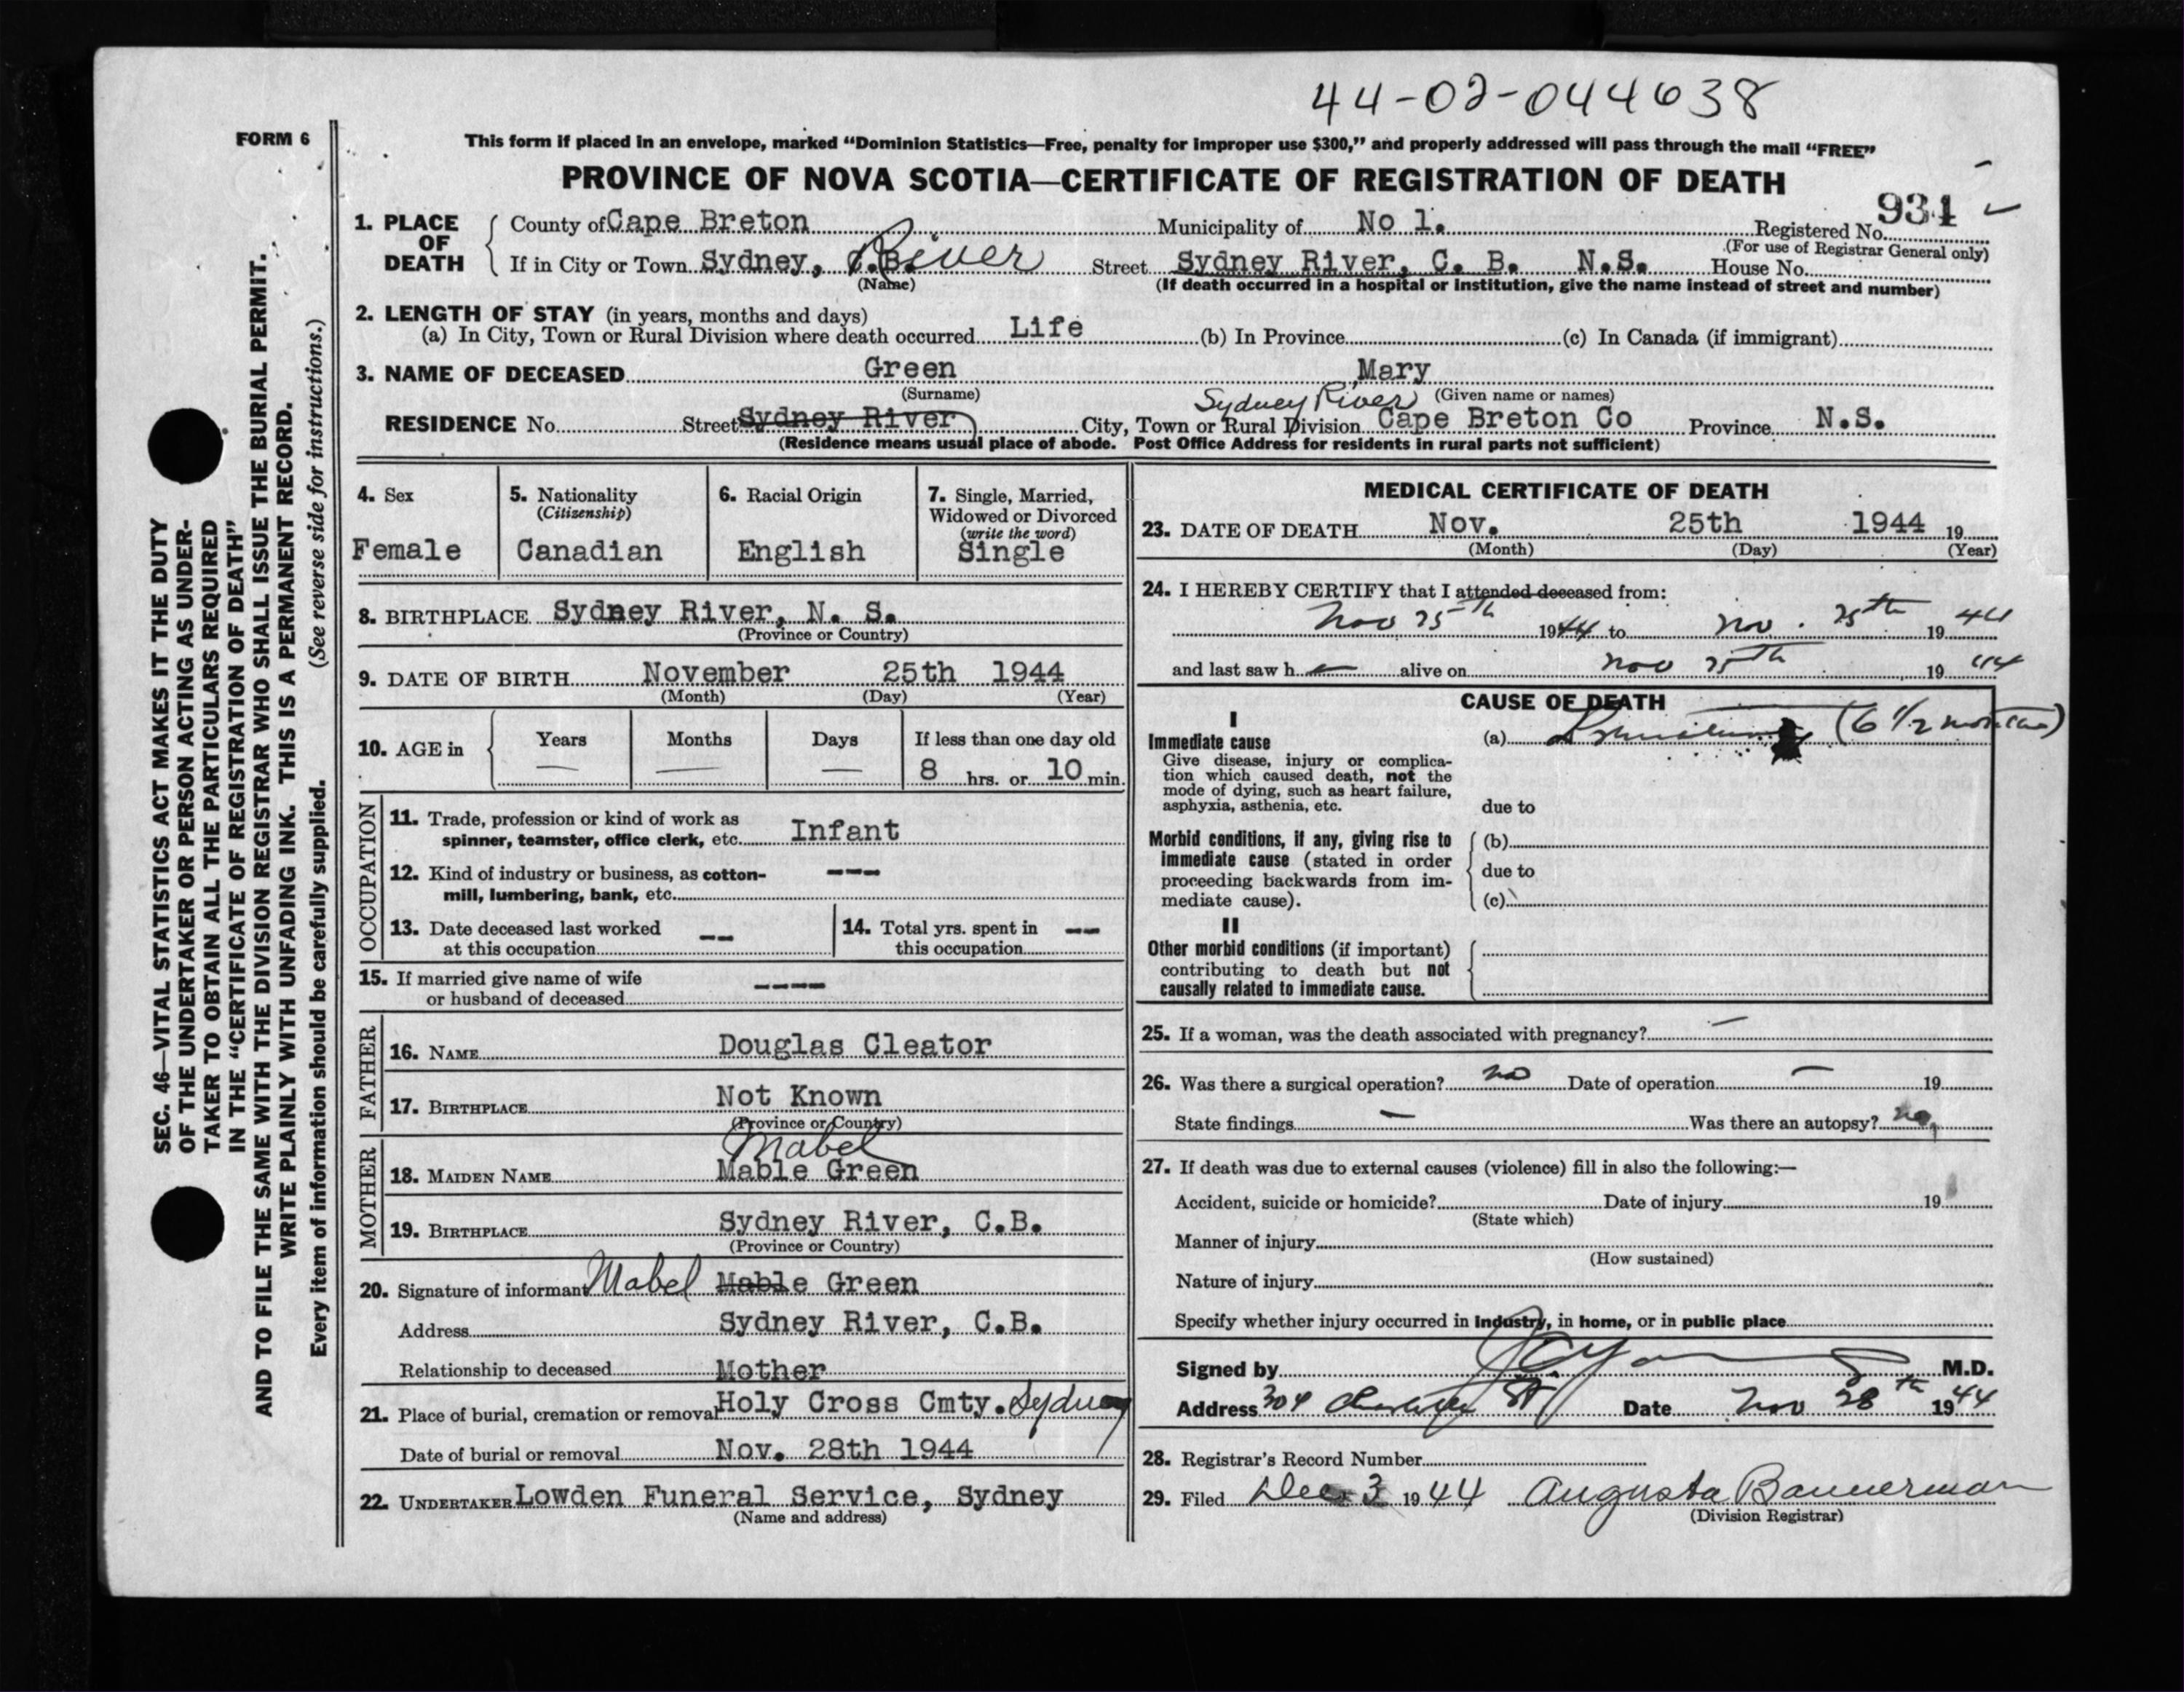 44-02-044638
FORM 6
This form if placed in an envelope, marked “Dominion Statistics—Free, penalty for improper use $300,” and properly addressed will pass through the mail “FREE”
PROVINCE OF NOVA SCOTIA—CERTIFICATE OF REGISTRATION OF DEATH
1. PLACE OF DEATH County of Cape Breton Municipality of No 1. Registered No. 931
(For use of Registrar General only)
If in City or Town Sydney, C.B. River Street Sydney River, C. B. N.S. House No.
(Name) (If death occurred in a hospital or institution, give the name instead of street and number)
2. LENGTH OF STAY (in years, months and days)
(a) In City, Town or Rural Division where death occurred Life (b) In Province (c) In Canada (if immigrant)
3. NAME OF DECEASED Green Mary
(Surname) (Given name or names)
Sydney River
RESIDENCE No. Street Sydney River City, Town or Rural Division Cape Breton Co Province N.S.
(Residence means usual place of abode. Post Office Address for residents in rural parts not sufficient)
4. Sex 5. Nationality (Citizenship) 6. Racial Origin 7. Single, Married, Widowed or Divorced (write the word)
Female Canadian English Single
8. BIRTHPLACE Sydney River, N. S.
(Province or Country)
9. DATE OF BIRTH November 25th 1944
(Month) (Day) (Year)
10. AGE in Years Months Days If less than one day old
— — — 8 hrs. or 10 min.
OCCUPATION
11. Trade, profession or kind of work as
spinner, teamster, office clerk, etc. Infant
12. Kind of industry or business, as cotton-
mill, lumbering, bank, etc. ---
13. Date deceased last worked
at this occupation --
14. Total yrs. spent in
this occupation --
15. If married give name of wife
or husband of deceased ----
FATHER
16. NAME Douglas Cleator
17. BIRTHPLACE Not Known
(Province or Country)
MOTHER
Mabel
18. MAIDEN NAME Mable Green
19. BIRTHPLACE Sydney River, C.B.
(Province or Country)
20. Signature of informant Mabel Mable Green
Address Sydney River, C.B.
Relationship to deceased Mother
21. Place of burial, cremation or removal Holy Cross Cmty. Sydney
Date of burial or removal Nov. 28th 1944
22. UNDERTAKER Lowden Funeral Service, Sydney
(Name and address)
MEDICAL CERTIFICATE OF DEATH
23. DATE OF DEATH Nov. 25th 1944 19
(Month) (Day) (Year)
24. I HEREBY CERTIFY that I attended deceased from:
Nov 25th 1944 to Nov. 25th 19 44
and last saw h alive on Nov 25th 19 44
CAUSE OF DEATH
I
Immediate cause
Give disease, injury or complica-
tion which caused death, not the
mode of dying, such as heart failure,
asphyxia, asthenia, etc.
(a) (6 1/2 months)
due to
Morbid conditions, if any, giving rise to
immediate cause (stated in order
proceeding backwards from im-
mediate cause).
(b)
due to
(c)
II
Other morbid conditions (if important)
contributing to death but not
causally related to immediate cause.
25. If a woman, was the death associated with pregnancy? —
26. Was there a surgical operation? no Date of operation — 19
State findings — Was there an autopsy? no
27. If death was due to external causes (violence) fill in also the following:—
Accident, suicide or homicide? Date of injury 19
(State which)
Manner of injury
(How sustained)
Nature of injury
Specify whether injury occurred in industry, in home, or in public place
Signed by M.D.
Address 304 Charlotte St Date Nov 28th 1944
28. Registrar's Record Number
29. Filed Dec 3 1944 Augusta Bannerman
(Division Registrar)
SEC. 46—VITAL STATISTICS ACT MAKES IT THE DUTY
OF THE UNDERTAKER OR PERSON ACTING AS UNDER-
TAKER TO OBTAIN ALL THE PARTICULARS REQUIRED
IN THE “CERTIFICATE OF REGISTRATION OF DEATH”
AND TO FILE THE SAME WITH THE DIVISION REGISTRAR WHO SHALL ISSUE THE BURIAL PERMIT.
WRITE PLAINLY WITH UNFADING INK. THIS IS A PERMANENT RECORD.
Every item of information should be carefully supplied. (See reverse side for instructions.)